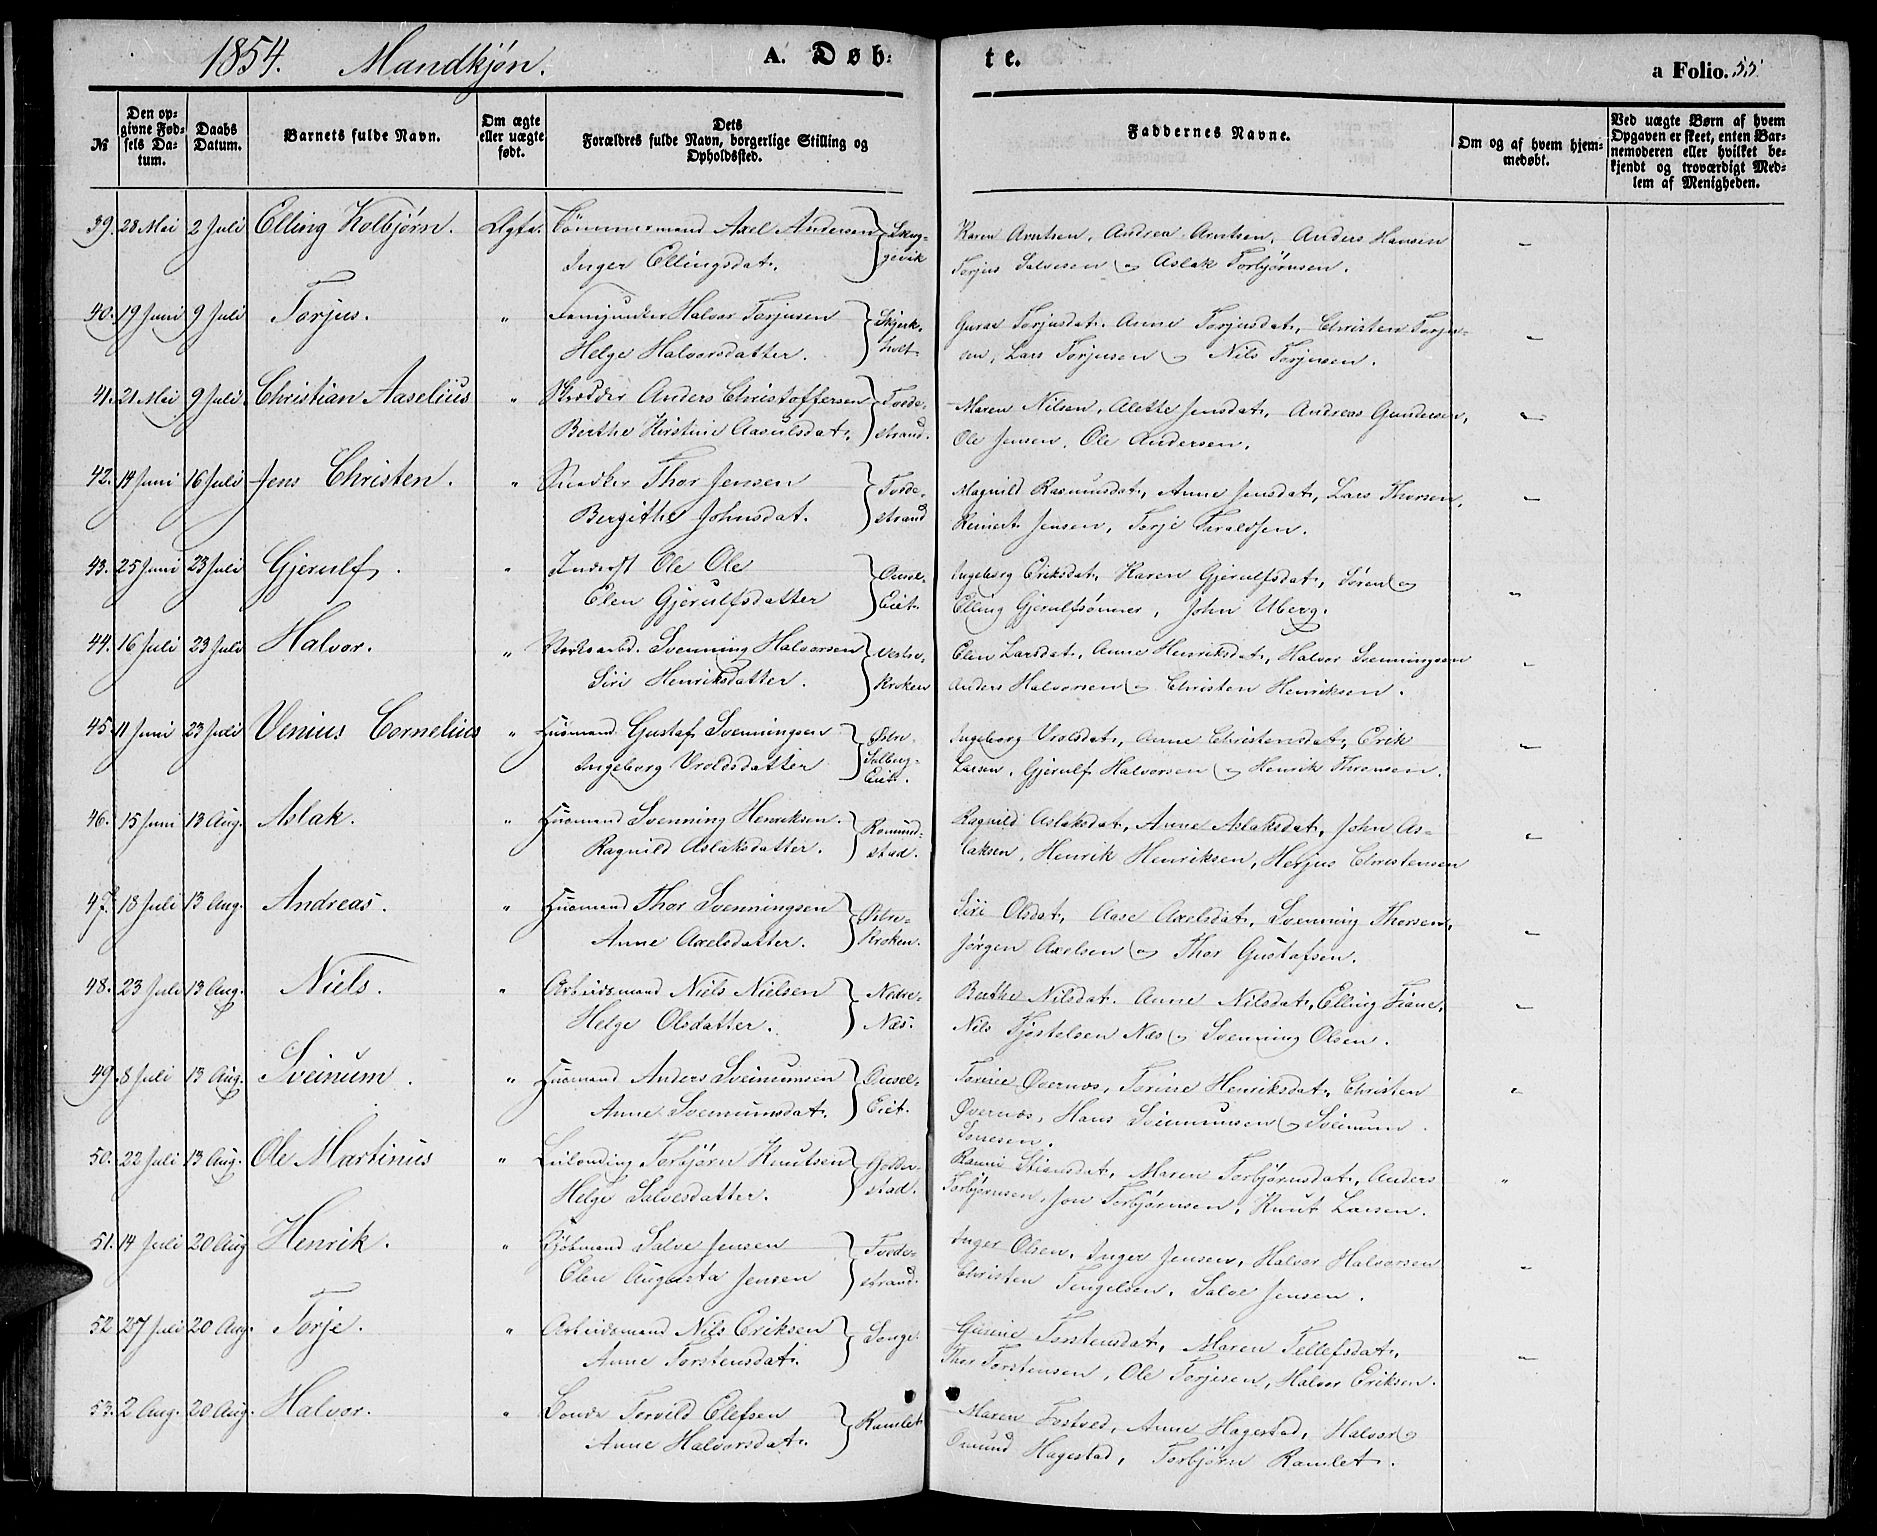 1854. Mandkjøn. A. Døb: te. a Folio. 55
№
Den opgivne Fødsels Datum.
Daabs Datum.
Barnets fulde Navn.
Om ægte eller uægte født.
Dets Forældres fulde Navn, borgerlige Stilling og Opholdssted.
Faddernes Navne.
Om og af hvem hjemmedøbt.
Ved uægte Børn af hvem Opgaven er skeet, enten Barnemoderen eller hvilket bekjendt og troværdigt Medlem af Menigheden.
39. 28 Mai 2 Juli Elling Kolbjørn. Ægte. Tømmermand Axel Andersen Skuggevik Karen Arntsen, Andrea Arntsen, Anders Hansen
Inger Ellingsdat. Torjus Salvesen og Aslak Torbjørnsen.
40. 19 Juni 9 Juli Torjus. " Halvor Torjusen Skjerkholt Guroe Torjusdat. Anne Torjusdat, Christen Torju-
Helge Halvorsdatter. sen, Lars Torjusen og Nils Torjusen.
41. 21 Mai 9 Juli Christian Aaselius " Skrædder Anders Christoffersen Tvedestrand. Maren Nilsen, Alette Jensdat, Andreas Gundersen,
Berthe Kirstine Aasulsdat. Ole Jensen, Ole Andersen.
42. 14 Juni 16 Juli Jens Christen. " Snedker Thor Jensen Tvedestrand Magnild Rasmusdat, Anne Jensdat, Lars Thorsen,
Bergithe Johnsdat. Reinert Jensen, Torje Taraldsen.
43. 25 Juni 23 Juli Gjerulf. " Inderst Ole Ole Ousel-Eiet. Ingeborg Eriksdat, Karen Gjerulfsdat, Søren og
Elen Gjerulfsdatter Elling Gjerulfsønner, John Uberg.
44. 16 Juli 23 Juli Halvor. " Svenning Halvorsen Vestre-Kroken Elen Larsdat, Anne Henriksdat, Halvor Svenningsen
Siri Henriksdatter. Anders Halvorsen og Christen Henriksen.
45. 11 Juni 23 Juli Venius Cornelius " Huusmand Gustaf Svenningsen Østre-Eiet. Ingeborg Vroldsdat, Anne Christensdat, Erik
Ingeborg Vroldsdatter Larsen, Gjerulf Halvorsen og Henrik Thronsen.
46. 15 Juni 13 Aug. Aslak. " Huusmand Svenning Henriksen. Romundstad. Ragnild Aslaksdat, Anne Aslaksdat, John As-
Ragnild Aslaksdatter. laksen, Henrik Henriksen, Herjus Christensen
47. 18 Juli 13 Aug. Andreas. " Huusmand Thor Svenningsen Østre-Kroken. Siri Olsdat, Aase Axelsdat, Svenning Thorsen,
Anne Axelsdatter. Jørgen Axelsen og Thor Gustafsen.
48. 23 Juli 13 Aug. Niels. " Arbeidsmand Niels Nielsen Nedre-Næs. Berthe Nilsdat. Anne Nilsdat, Elling Fiane,
Helge Olsdatter. Nils Næs og Svenning Olsen.
49. 8 Juli 13 Aug. Sveinum. " Huusmand Anders Sveinumsen Ousel-Eiet. Torine Øvernæs, Torine Henriksdat, Christen
Anne Sveinumsdat. Øvernæs, Hans Sveinumsen og Sveinum
50. 22 Juli 13 Aug. Ole Martinus " Torbjørn Knutsen Stiansdat, Maren Torbjørnsdat, Anders
Helge Salvesdatter. Torbjørnsen, Jon Torbjørnsen, Knut Larsen.
51. 14 Juli 20 Aug Henrik. " Kjøbmand Salve Jensen Tvedestrand. Inger Olsen, Inger Jensen, Halvor Halvorsen
Elen Augusta Jensen Christen Tengelsen, Salve Jensen.
52 27 Juli 20 Aug. Torje. " Arbeidsmand Nils Eriksen Songe. Gurine Torstensdat, Maren Tellefsdat,
Anne Torstensdat. Thor Torstensen, Ole Torjesen, Halvor Eriksen.
53. 2 Aug. 20 Aug. Halvor. " Bonde Torvild Olefsen Ramlet Maren Fostved, Anne Hagestad, Halvor og
Anne Halvorsdat. Omund Hagestad, Torbjørn Ramlet.